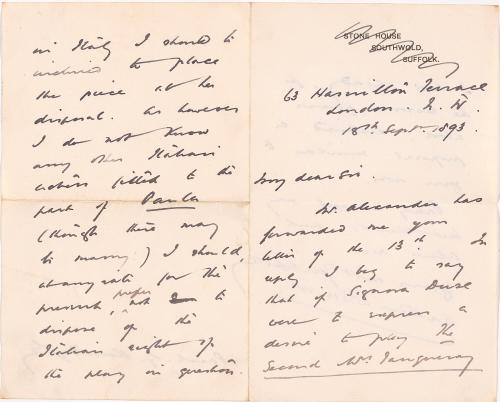 STONE HOUSE
SOUTHWOLD,
SUFFOLK.
63 Hamilton Terrace
London. N. W.
18th Sept. 1893.
My dear Sir.
Mr. Alexander has
forwarded me your
letter of the 13th. In
reply I beg to say
that if Signora Duse
were to express a
desire to play The
Second Mrs Tanqueray
in Italy I should be
inclined to place
the piece at her
disposal. As however
I do not know
any other Italian
actress fitted to the
part of Paula
(though there may
be many) I should,
at any rate for the
present, prefer not to
dispose of the
Italian right of
the play in question.